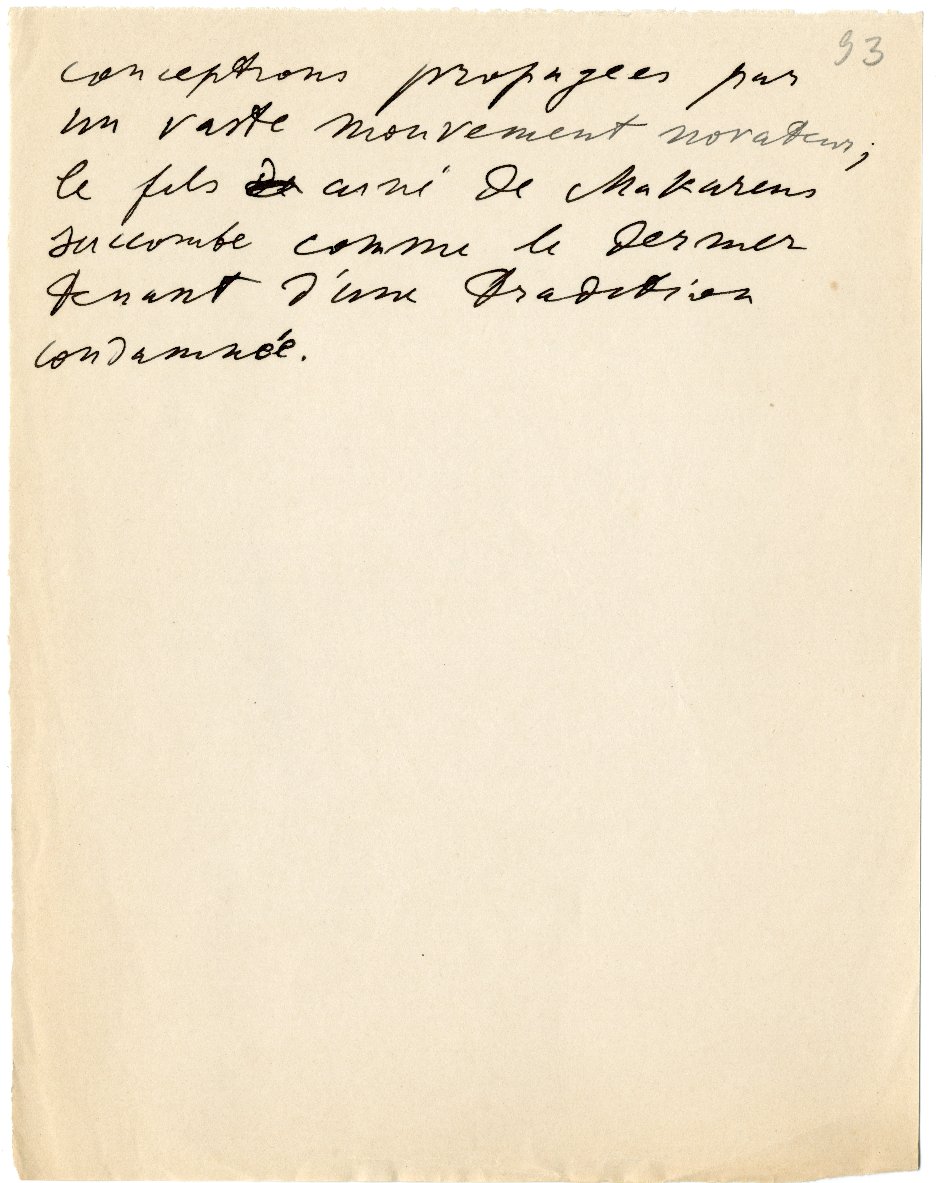 93
conceptions propagées par
un vaste mouvement novateur,
le fils de ainé de Makarens
succombe comme le dernier
tenant d'une tradition
condamnée.